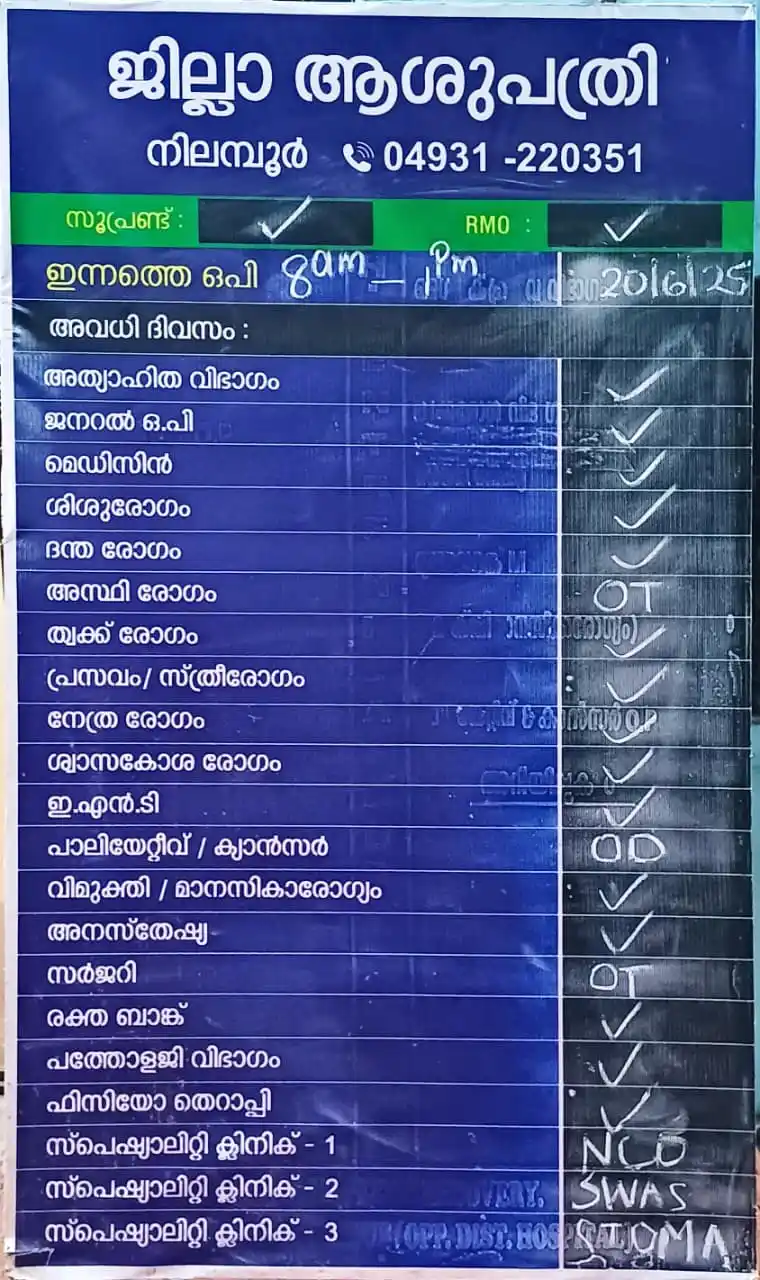 ജില്ലാ ആശുപത്രി
നിലമ്പൂർ 04931 -220351
സൂപ്രണ്ട് : ✓ RMO : ✓
ഇന്നത്തെ ഒപി 8am - 1Pm 20/6/25
അവധി ദിവസം :
അത്യാഹിത വിഭാഗം ✓
ജനറൽ ഒ.പി ✓
മെഡിസിൻ ✓
ശിശുരോഗം ✓
ദന്ത രോഗം ✓
അസ്ഥി രോഗം OT
ത്വക്ക് രോഗം ✓
പ്രസവം/ സ്ത്രീരോഗം ✓
നേത്ര രോഗം ✓
ശ്വാസകോശ രോഗം ✓
ഇ.എൻ.ടി ✓
പാലിയേറ്റീവ് / ക്യാൻസർ OD
വിമുക്തി / മാനസികാരോഗ്യം ✓
അനസ്തേഷ്യ ✓
സർജറി OT
രക്ത ബാങ്ക് ✓
പത്തോളജി വിഭാഗം ✓
ഫിസിയോ തെറാപ്പി ✓
സ്പെഷ്യാലിറ്റി ക്ലിനിക് - 1 NCD
സ്പെഷ്യാലിറ്റി ക്ലിനിക് - 2 SWAS
സ്പെഷ്യാലിറ്റി ക്ലിനിക് - 3 STOMA
(OPP. DIST. HOSPITAL)